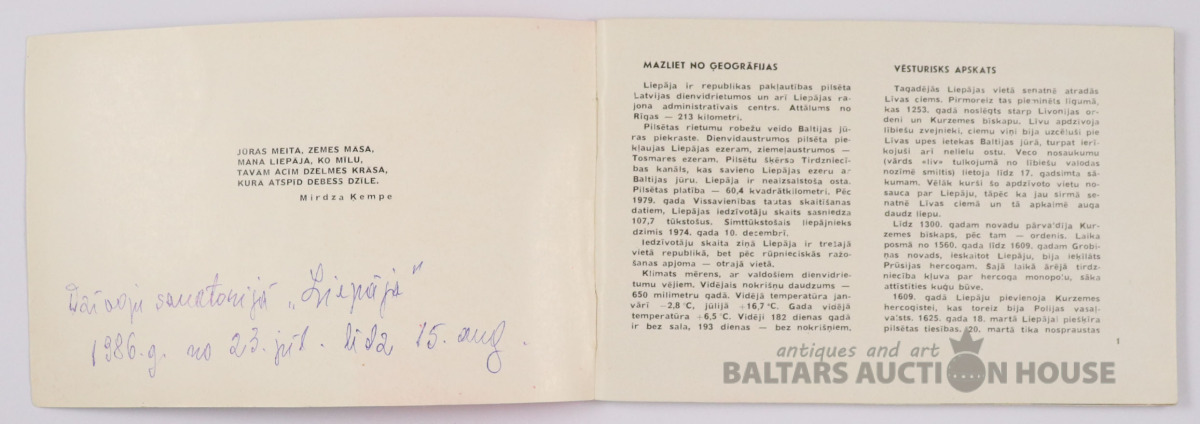 JŪRAS MEITA, ZEMES MASA,
MANA LIEPĀJA, KO MĪLU,
TAVĀM ACĪM DZELMES KRĀSA,
KURĀ ATSPĪD DEBESS DZĪLE.
Mirdza Ķempe
sanatorijā „Liepājā"
1986.g. no 23. jūl. līdz 15. aug.
MAZLIET NO ĢEOGRĀFIJAS
Liepāja ir republikas pakļautības pilsēta
Latvijas dienvidrietumos un arī Liepājas ra-
jona administratīvais centrs. Attālums no
Rīgas — 213 kilometri.
Pilsētas rietumu robežu veido Baltijas jū-
ras piekraste. Dienvidaustrumos pilsēta pie-
kļaujas Liepājas ezeram, ziemeļaustrumos —
Tosmares ezeram. Pilsētu šķērso Tirdzniecī-
bas kanāls, kas savieno Liepājas ezeru ar
Baltijas jūru. Liepāja ir neaizsalstoša osta.
Pilsētas platība — 60,4 kvadrātkilometri. Pēc
1979. gada Vissavienības tautas skaitīšanas
datiem, Liepājas iedzīvotāju skaits sasniedza
107,7 tūkstošus. Simttūkstošais liepājnieks
dzimis 1974. gada 10. decembrī.
Iedzīvotāju skaita ziņā Liepāja ir trešajā
vietā republikā, bet pēc rūpnieciskās ražo-
šanas apjoma — otrajā vietā.
Klimats mērens, ar valdošiem dienvidrie-
tumu vējiem. Vidējais nokrišņu daudzums —
650 milimetru gadā. Vidējā temperatūra jan-
vārī —2,8°C, jūlijā +16,7°C. Gada vidējā
temperatūra +6,5°C. Vidēji 182 dienas gadā
ir bez sala, 193 dienas — bez nokrišņiem.
VĒSTURISKS APSKATS
Tagadējās Liepājas vietā senatnē atradās
Līvas ciems. Pirmoreiz tas pieminēts līgumā,
kas 1253. gadā noslēgts starp Livonijas or-
deni un Kurzemes bīskapu. Līvu apdzīvoja
lībiešu zvejnieki, ciemu viņi bija uzcēluši pie
Līvas upes ietekas Baltijas jūrā, turpat ierī-
kojuši arī nelielu ostu. Veco nosaukumu
(vārds «līv» tulkojumā no lībiešu valodas
nozīmē smiltis) lietoja līdz 17. gadsimta sā-
kumam. Vēlāk kurši šo apdzīvoto vietu no-
sauca par Liepāju, tāpēc ka jau sirmā se-
natnē Līvas ciemā un tā apkaimē auga
daudz liepu.
Līdz 1300. gadam novadu pārvaldīja Kur-
zemes bīskaps, pēc tam — ordenis. Laika
posmā no 1560. gada līdz 1609. gadam Grobi-
ņas novads, ieskaitot Liepāju, bija ieķīlāts
Prūsijas hercogam. Šajā laikā ārējā tirdz-
niecība kļuva par hercoga monopolu, sāka
attīstīties kuģu būve.
1609. gadā Liepāju pievienoja Kurzemes
hercogistei, kas toreiz bija Polijas vasaļ-
valsts. 1625. gada 18. martā Liepājai piešķīra
pilsētas tiesības. 20. martā tika nospraustas
1
antiques and art
BALTARS AUCTION HOUSE